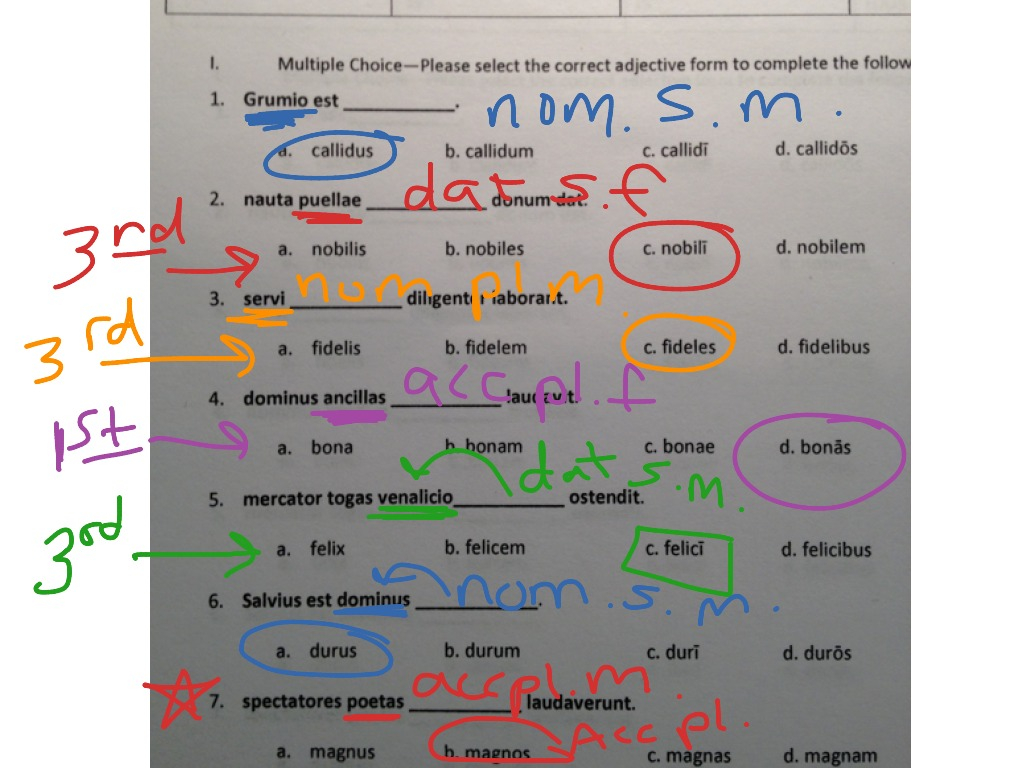 I. Multiple Choice—Please select the correct adjective form to complete the follow
1. Grumio est __________. nom. s. m.
a. callidus b. callidum c. callidī d. callidōs
2. nauta puellae __________ donum dat. dat s.f
3rd
a. nobilis b. nobiles c. nobilī d. nobilem
3. servi __________ diligenter laborant. nom pl m.
3rd
a. fidelis b. fidelem c. fideles d. fidelibus
4. dominus ancillas __________ laudavit. acc pl. f
1st
a. bona b. bonam c. bonae d. bonās
5. mercator togas venalicio __________ ostendit. dat s.m.
3rd
a. felix b. felicem c. felicī d. felicibus
6. Salvius est dominus __________. nom. s. m.
a. durus b. durum c. durī d. durōs
7. spectatores poetas __________ laudaverunt. acc pl. m.
Acc pl.
a. magnus b. magnos c. magnas d. magnam